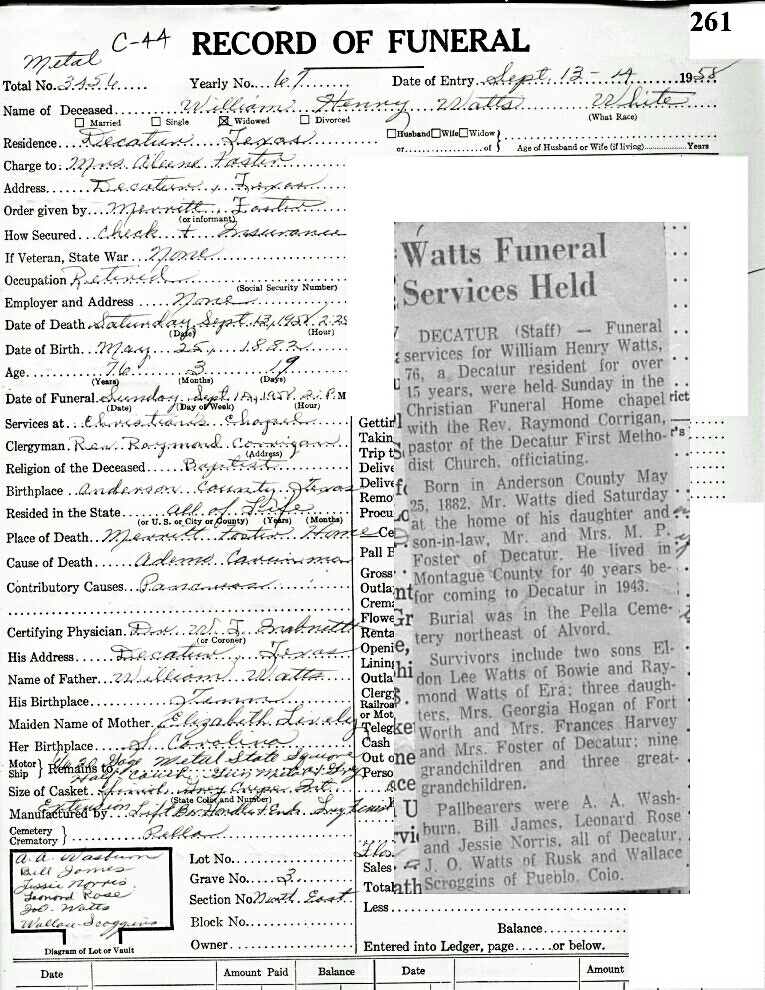 261
Metal C-44 RECORD OF FUNERAL
Total No. 3456 Yearly No. 67 Date of Entry Sept. 13-14 1958
Name of Deceased William Henry Watts White
Married Single Widowed Divorced (What Race)
Residence Decatur, Texas Husband Wife Widow
or of Age of Husband or Wife (if living) Years
Charge to: Mrs Alene Foster
Address Decatur, Texas
Order given by Merritt Foster
(or informant)
How Secured Check + Insurance
If Veteran, State War None
Occupation Retired
(Social Security Number)
Employer and Address None
Date of Death Saturday, Sept 13, 1958 2:25
(Date) (Hour)
Date of Birth May 25, 1882
Age 76 3 19
(Years) (Months) (Days)
Date of Funeral Sunday Sept 14, 1958 2: P.M
(Date) (Day of Week) (Hour)
Services at Christian's Chapel
Clergyman Rev. Raymond Corrigan
(Address)
Religion of the Deceased Baptist
Birthplace Anderson County, Texas
Resided in the State All of Life
(or U. S. or City or County) (Years) (Months)
Place of Death Merritt Foster Home
Cause of Death Adeno Carcinoma
Contributory Causes Pancreas
Certifying Physician Dr. W. J.
(or Coroner)
His Address Decatur, Texas
Name of Father William Watts
His Birthplace
Maiden Name of Mother Elizabeth
Her Birthplace S. Carolina
Motor
Ship Remains to Metal State Square
Size of Casket
(State Color and Number)
Manufactured by
Extension
Cemetery
Crematory Pella
A. A. Wasburn
Bill James
Jessie Norris
Leonard Rose
Joe. Watts
Wallace Scoggins
Diagram of Lot or Vault
Lot No.
Grave No. 3
Section No. North East
Block No.
Owner
Watts Funeral
Services Held
DECATUR (Staff) — Funeral
services for William Henry Watts,
76, a Decatur resident for over
15 years, were held Sunday in the
Christian Funeral Home chapel
with the Rev. Raymond Corrigan,
pastor of the Decatur First Metho-
dist Church, officiating.
Born in Anderson County May
25, 1882, Mr. Watts died Saturday
at the home of his daughter and
son-in-law, Mr. and Mrs. M. P.
Foster of Decatur. He lived in
Montague County for 40 years be-
for coming to Decatur in 1943.
Burial was in the Pella Ceme-
tery northeast of Alvord.
Survivors include two sons El-
don Lee Watts of Bowie and Ray-
mond Watts of Era; three daugh-
ters, Mrs. Georgia Hogan of Fort
Worth and Mrs. Frances Harvey
and Mrs. Foster of Decatur; nine
grandchildren and three great-
grandchildren.
Pallbearers were A. A. Wash-
burn, Bill James, Leonard Rose
and Jessie Norris, all of Decatur,
J. O. Watts of Rusk and Wallace
Scroggins of Pueblo, Colo.
Less
Balance
Entered into Ledger, page or below.
Date Amount Paid Balance Date Amount